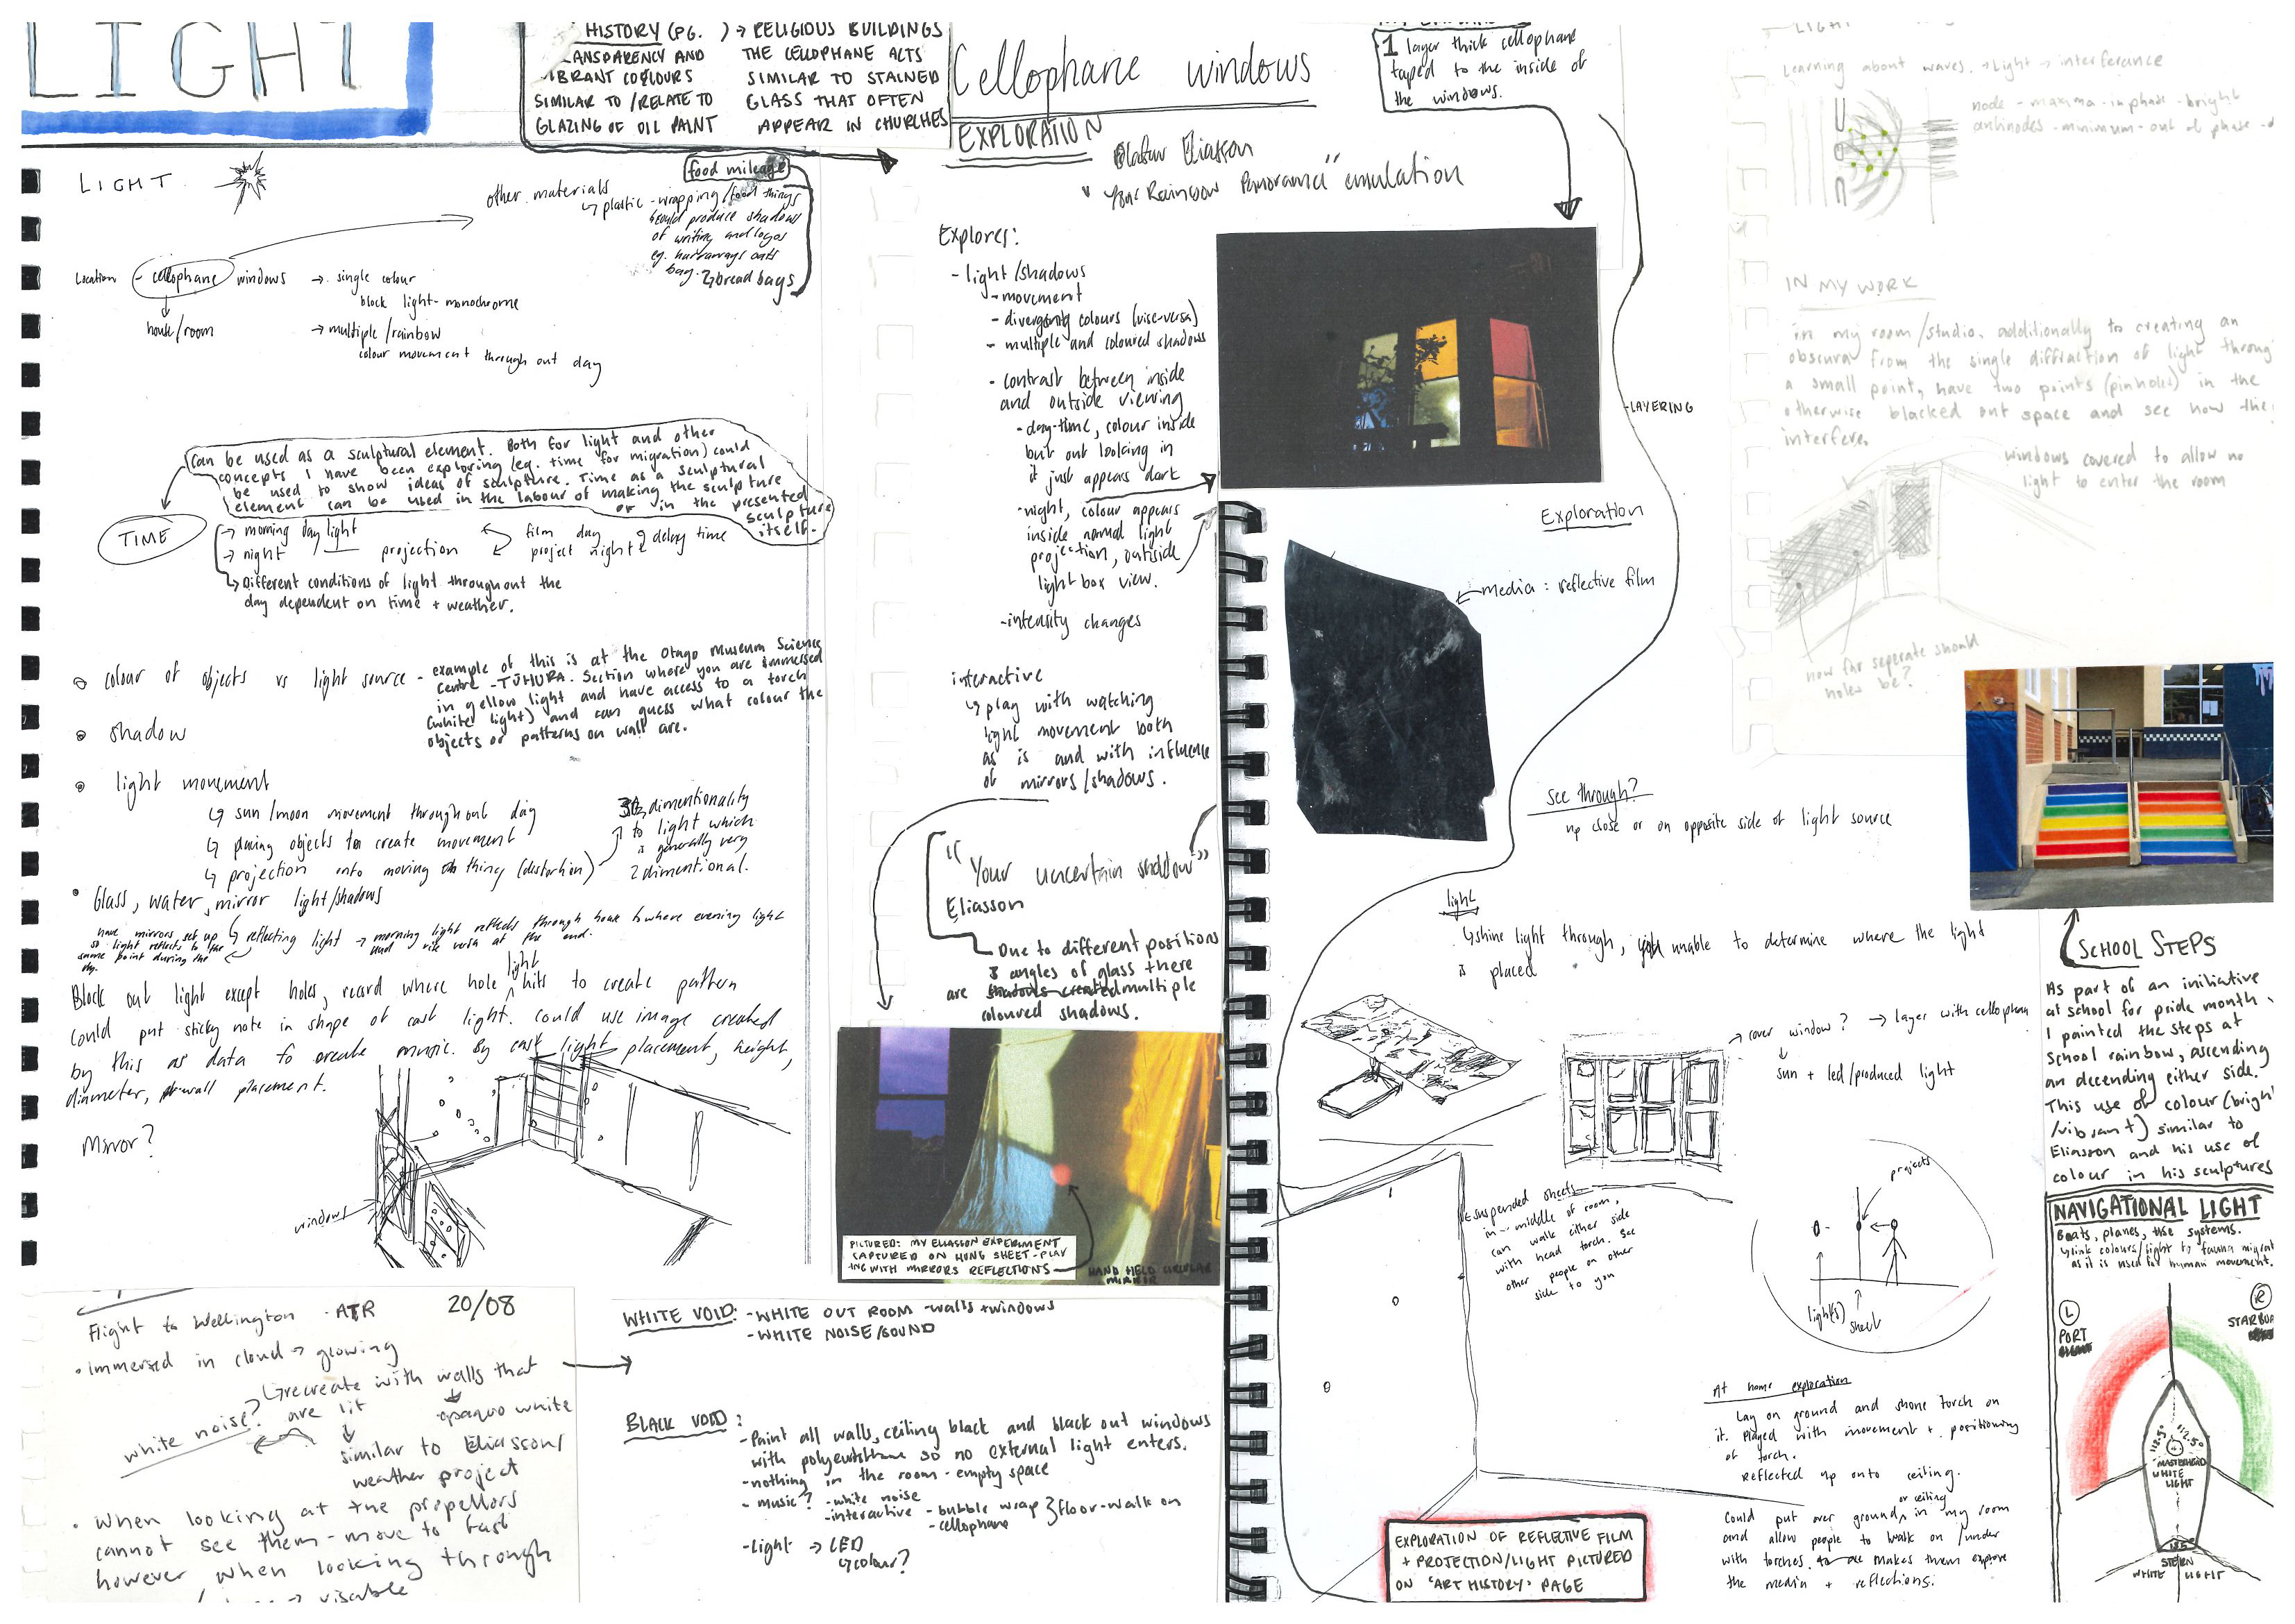 LIGHT
HISTORY (PG. ) → RELIGIOUS BUILDINGS
TRANSPARENCY AND
VIBRANT COLOURS
SIMILAR TO / RELATE TO
GLAZING OF OIL PAINT
THE CELLOPHANE ACTS
SIMILAR TO STAINED
GLASS THAT OFTEN
APPEAR IN CHURCHES
LIGHT
food mileage
other materials
↳ plastic - wrapping / food things
could produce shadows
of writing and logos
eg. harraways oats
bag.
↳ bread bags
Location - cellophane windows → single colour
block light - monochrome
house/room
→ multiple / rainbow
colour movement through out day
Can be used as a sculptural element. Both for light and other
concepts I have been exploring (eg. time for migration) could
be used to show ideas of sculpture. Time as a sculptural
element can be used in the labour of making the sculpture
or in the presented
sculpture
itself.
TIME
→ morning day light
→ night
projection
film day
project night
delay time
↳ Different conditions of light throughout the
day dependent on time + weather.
colour of objects vs light source - example of this is at the Otago Museum Science
Centre - TŪHURA. Section where you are immersed
in yellow light and have access to a torch
(white light) and can guess what colour the
objects or patterns on wall are.
shadow
light movement
↳ sun/moon movement throughout day
↳ placing objects to create movement
↳ projection onto moving thing (distortion)
dimentionality
to light which
is generally very
2 dimentional.
Glass, water, mirror light/shadows
↳ reflecting light → morning light reflects through house to where evening light
and vis versa at the end.
have mirrors set up
so light reflects to the
same point during the
day.
Block out light except holes, record where hole light hits to create pattern
Could put sticky note in shape of cast light. Could use image created
by this as data to create music. By cast light placement, height,
diameter, wall placement.
Mirror?
windows
Flight to Wellington - ATR 20/08
• immersed in cloud → glowing
↳ recreate with walls that
are lit
opaque white
white noise?
similar to Eliassons
weather project
• When looking at the propellors
cannot see them - move to fast
however, when looking through
→ visable
Cellophane windows
EXPLORATION
Olafur Eliasson
"Your Rainbow Panorama" emulation
1 layer thick cellophane
taped to the inside of
the windows.
Explores:
- light/shadows
- movement
- diverging colours (vise-versa)
- multiple and coloured shadows
- contrast between inside
and outside viewing
- day-time, colour inside
but out looking in
it just appears dark
- night, colour appears
inside normal light
projection, outside
light box view.
- intensity changes
interactive
↳ play with watching
light movement both
as is and with influence
of mirrors/shadows.
"Your uncertain shadow"
Eliasson
Due to different positions
& angles of glass there
are shadows created multiple
coloured shadows.
PICTURED: MY ELIASSON EXPERIMENT
CAPTURED ON HUNG SHEET - PLAY
ING WITH MIRRORS REFLECTIONS
HAND HELD CIRCULAR
MIRROR
WHITE VOID: - WHITE OUT ROOM - walls + windows
- WHITE NOISE/SOUND
BLACK VOID:
- Paint all walls, ceiling black and black out windows
with so no external light enters.
- nothing in the room - empty space
- music? - white noise
- interactive - bubble wrap } floor - walk on
- cellophane
- Light → LED
↳ colour?
- LAYERING
Exploration
media: reflective film
See through?
up close or on opposite side of light source
light
↳ shine light through, unable to determine where the light
is placed
cover window? → layer with cellophane
sun + led/produced light
suspended sheets
in middle of room,
can walk either side
with head torch. See
other people on other
side to you
projects
light(s)
sheet
At home exploration
Lay on ground and shone torch on
it. Played with movement + positioning
of torch.
Reflected up onto ceiling.
Could put over ground or ceiling in my room
and allow people to walk on/under
with torches. makes them explore
the media + reflections.
EXPLORATION OF REFLECTIVE FILM
+ PROTECTION/LIGHT PICTURED
ON 'ART HISTORY' PAGE
LIGHT
Learning about waves. → Light → interference
node - maxima - in phase - bright
antinodes - minimum - out of phase - d
IN MY WORK
in my room/studio. additionally to creating an
obscura from the single diffraction of light throug
a small point, have two points (pinholes) in the
otherwise blacked out space and see how the
interfere.
windows covered to allow no
light to enter the room
how far seperate should
holes be?
SCHOOL STEPS
As part of an initiative
at school for pride month
I painted the steps at
school rainbow, ascending
an decending either side.
This use of colour (brigh
/vibrant) similar to
Eliasson and his use of
colour in his sculptures
NAVIGATIONAL LIGHT
Boats, planes, systems.
↳ link colours/light to fauna migrat
as it is used for human movement.
L
PORT
R
STARBOA
112.5°
112.5°
MASTERHEAD
WHITE
LIGHT
135°
STERN
WHITE LIGHT